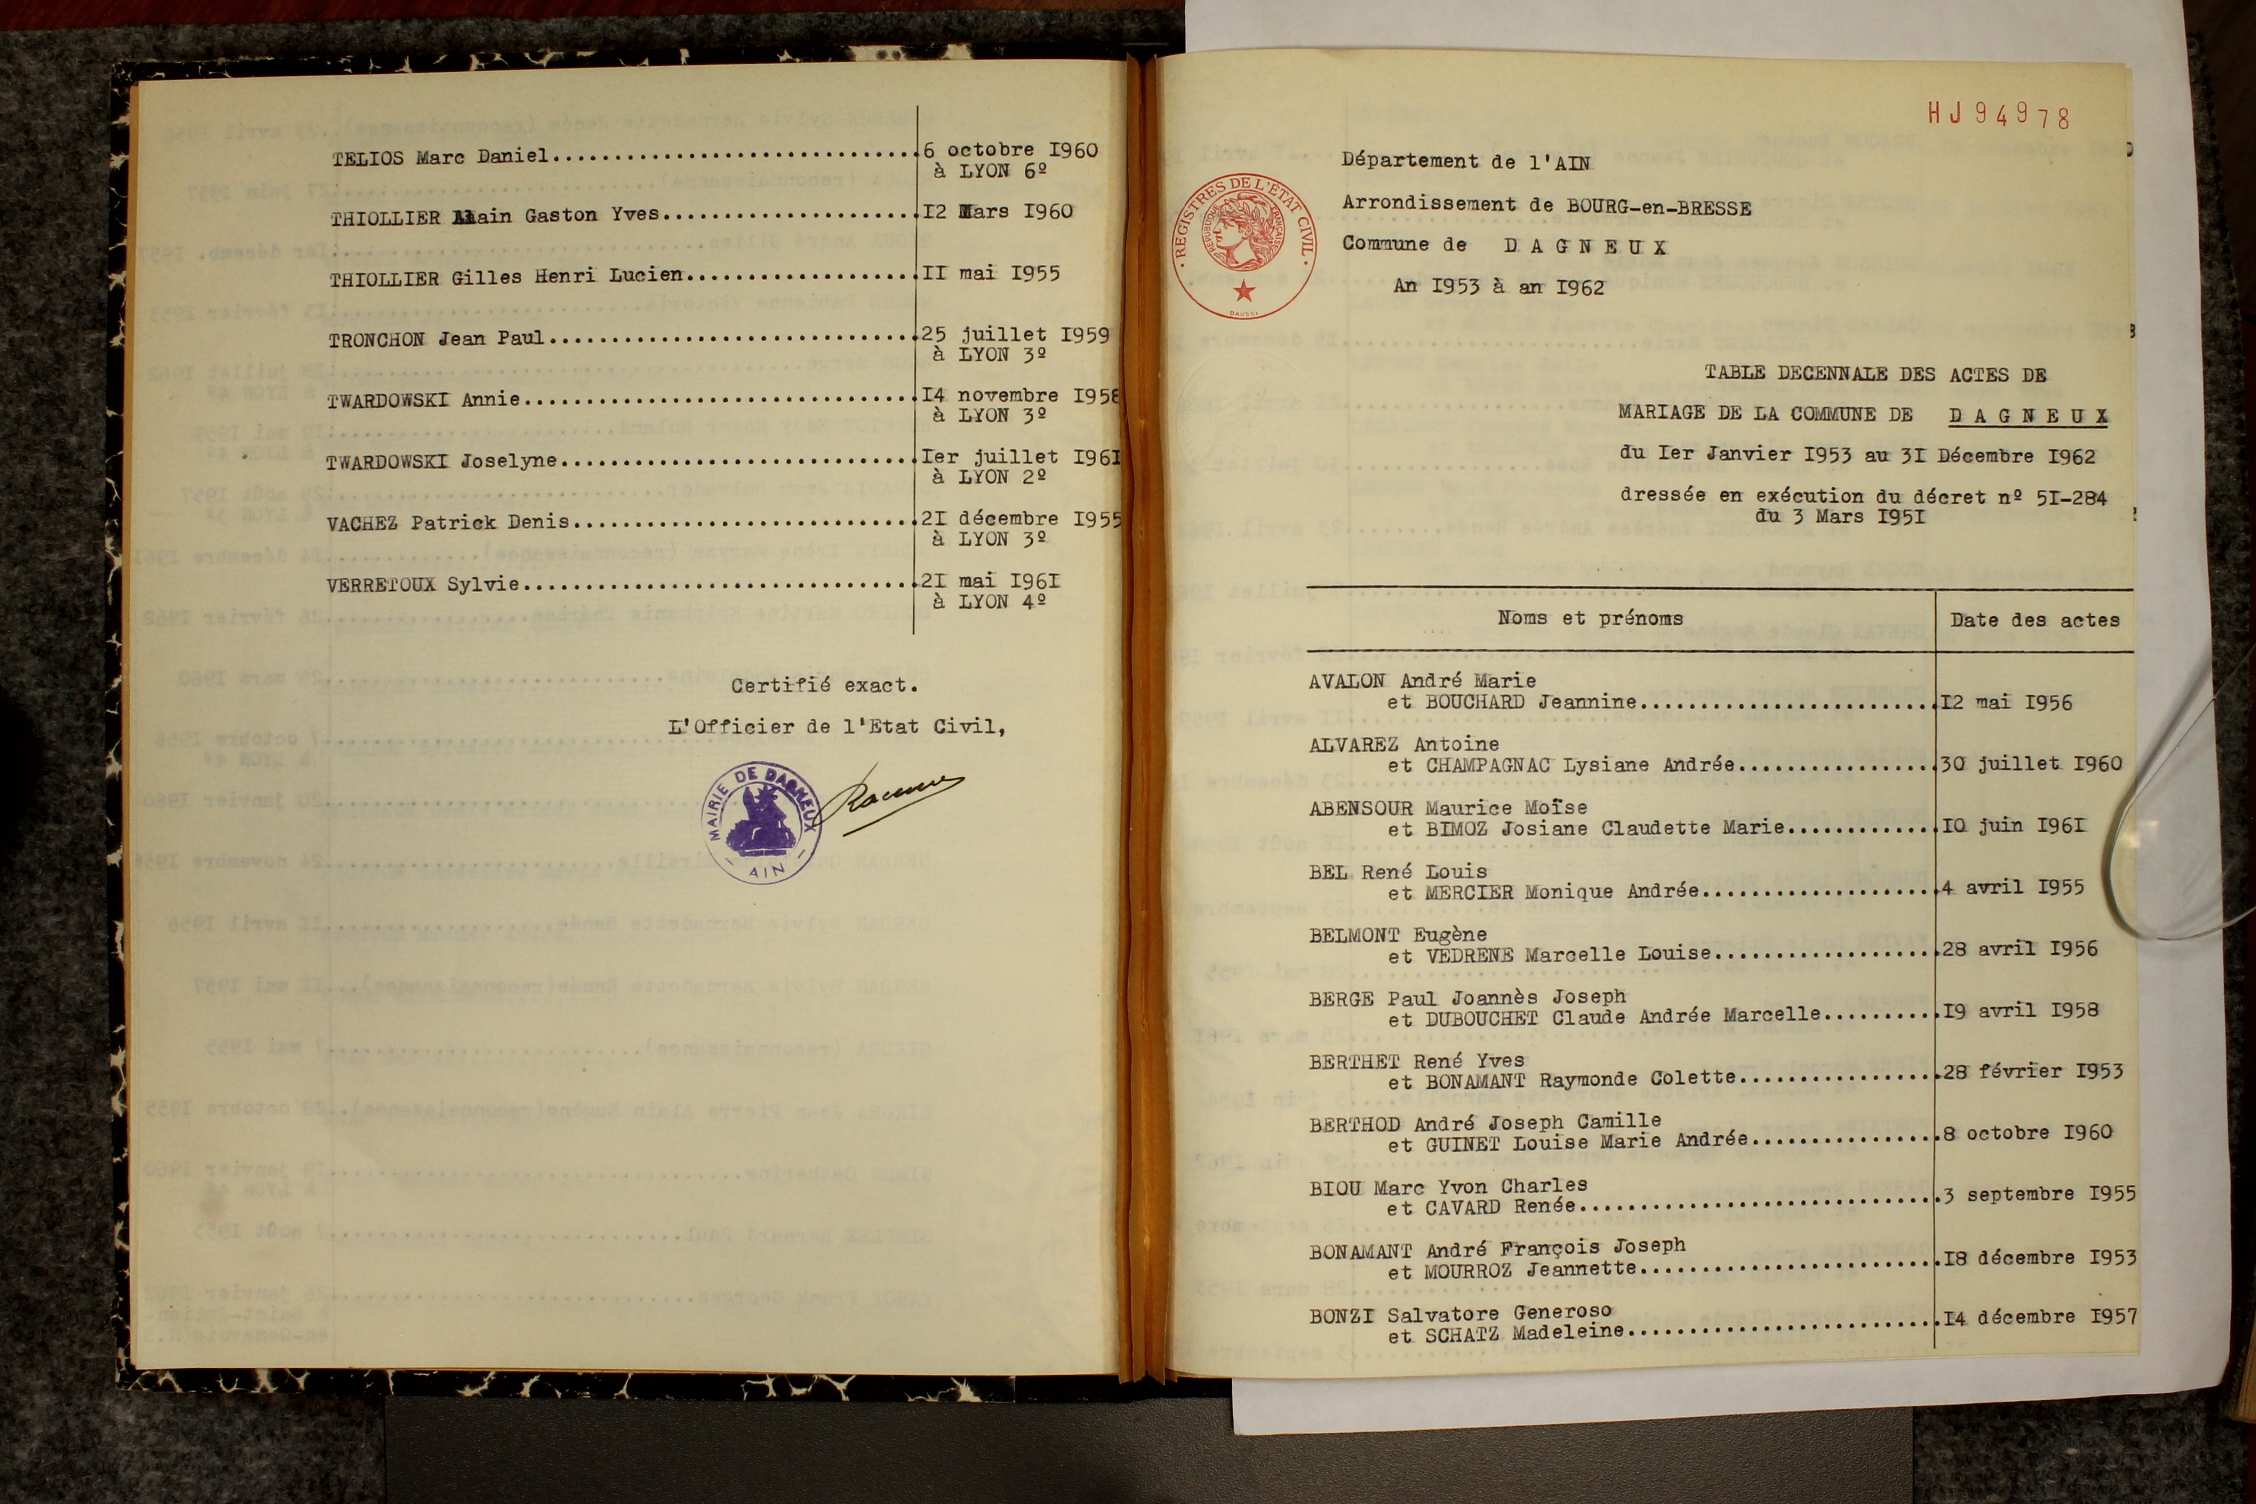 TELIOS Marc Daniel..............................6 octobre I960
à LYON 6º
THIOLLIER Alain Gaston Yves.....................I2 Mars I960
THIOLLIER Gilles Henri Lucien...................II mai I955
TRONCHON Jean Paul..............................25 juillet I959
à LYON 3º
TWARDOWSKI Annie................................I4 novembre I958
à LYON 3º
TWARDOWSKI Joselyne.............................Ier juillet I96I
à LYON 2º
VACHEZ Patrick Denis............................2I décembre I955
à LYON 3º
VERRETOUX Sylvie................................2I mai I96I
à LYON 4º
Certifié exact.
L'Officier de l'Etat Civil,
MAIRIE DE DAGNEUX
- AIN -
HJ94978
· REGISTRES DE L'ÉTAT CIVIL ·
RÉPUBLIQUE FRANÇAISE
DAUSSI
Département de l'AIN
Arrondissement de BOURG-en-BRESSE
Commune de D A G N E U X
An I953 à an I962
TABLE DECENNALE DES ACTES DE
MARIAGE DE LA COMMUNE DE D A G N E U X
du Ier Janvier I953 au 3I Décembre I962
dressée en exécution du décret nº 5I-284
du 3 Mars I95I
Noms et prénoms Date des actes
AVALON André Marie
et BOUCHARD Jeannine.........................I2 mai I956
ALVAREZ Antoine
et CHAMPAGNAC Lysiane Andrée.................30 juillet I960
ABENSOUR Maurice Moïse
et BIMOZ Josiane Claudette Marie.............I0 juin I96I
BEL René Louis
et MERCIER Monique Andrée....................4 avril I955
BELMONT Eugène
et VEDRENE Marcelle Louise...................28 avril I956
BERGE Paul Joannès Joseph
et DUBOUCHET Claude Andrée Marcelle..........I9 avril I958
BERTHET René Yves
et BONAMANT Raymonde Colette.................28 février I953
BERTHOD André Joseph Camille
et GUINET Louise Marie Andrée................8 octobre I960
BIOU Marc Yvon Charles
et CAVARD Renée..............................3 septembre I955
BONAMANT André François Joseph
et MOURROZ Jeannette.........................I8 décembre I953
BONZI Salvatore Generoso
et SCHATZ Madeleine..........................I4 décembre I957